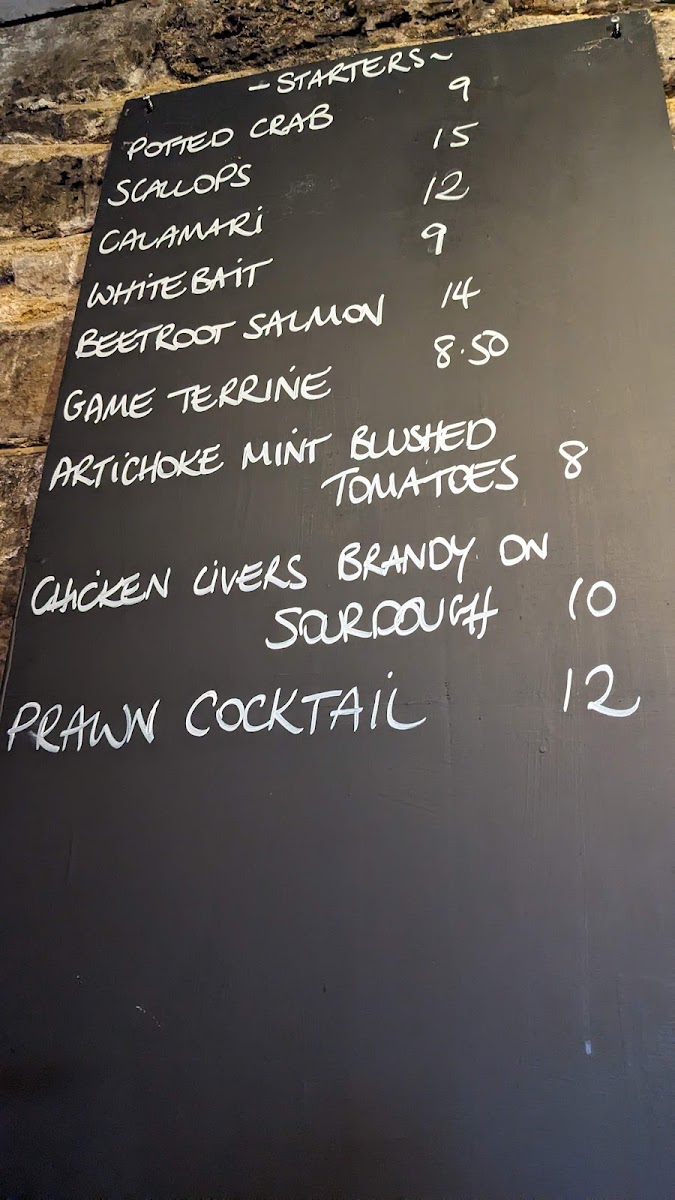 ~STARTERS~
POTTED CRAB 9
SCALLOPS 15
CALAMARI 12
WHITEBAIT 9
BEETROOT SALMON 14
GAME TERRINE 8.50
ARTICHOKE MINT BLUSHED
TOMATOES 8
CHICKEN LIVERS BRANDY ON
SOURDOUGH 10
PRAWN COCKTAIL 12